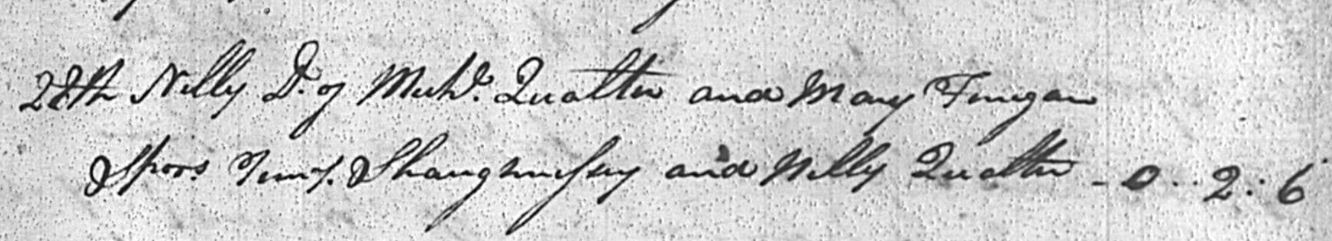 28th Nelly D. of Michl. Qualter and Mary Finegan
Spors. Shaughnessy and Nelly Qualter - 0..2:6